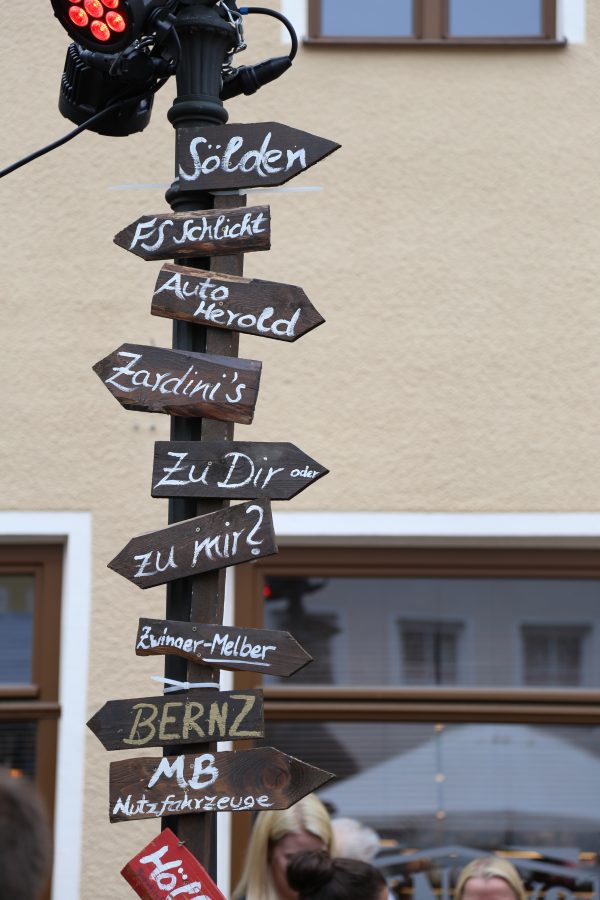 Sölden
FS Schlicht
Auto
Herold
Zardini's
Zu Dir oder
zu mir?
Zwinger-Melber
BERNZ
MB
Nutzfahrzeuge